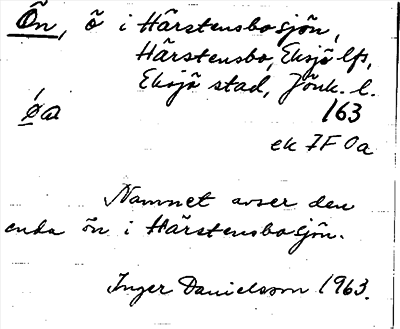 Ön, ö i Hårstensbosjön,
Hårstensbo, Eksjö lfs,
Eksjö stad, Jönk. l.
163
ek 7F 0a
Namnet avser den
enda ön i Hårstensbosjön.
Inger Danielsson 1963.